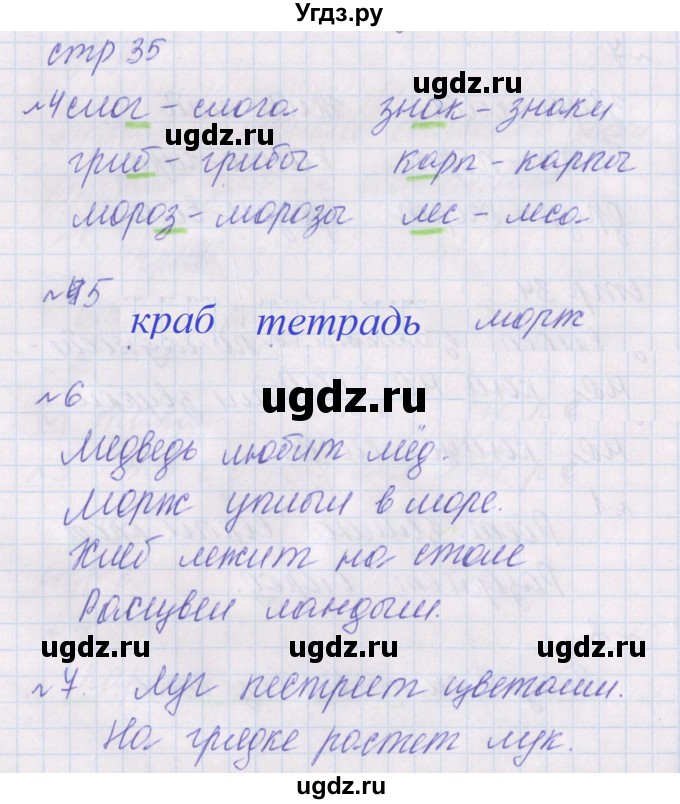 Угдз.ру
стр 35
№4 слог - слога знак - знаки
ugdz.ru
ugdz.ru
гриб - грибы карп - карпы
мороз - морозы лес - леса
№5
краб тетрадь морж
ugdz.ru
№6
Медведь любит мёд.
Морж уплыл в море.
Хлеб лежит на столе
Расцвел ландыш.
ugdz.ru ugdz.ru ugdz.ru
№7. Луг пестреет цветами.
На грядке растет лук.
ugdz.ru